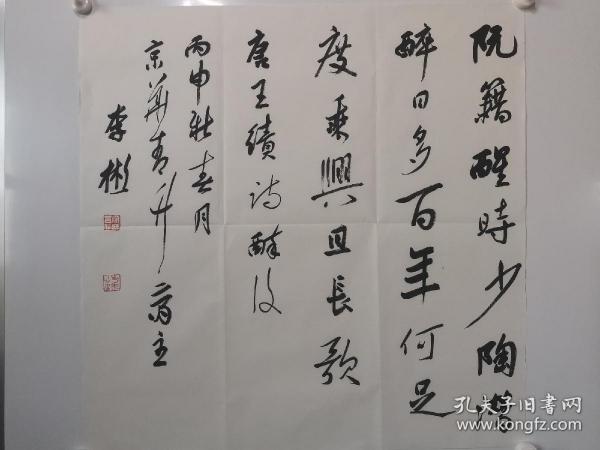 阮籍醒時少陶潛
醉日多百年何足
度乘興且長歌
唐王績诗醉后
丙申秋春月
京華青升齋主
李彬
孔夫子旧书网
www.kongfz.com